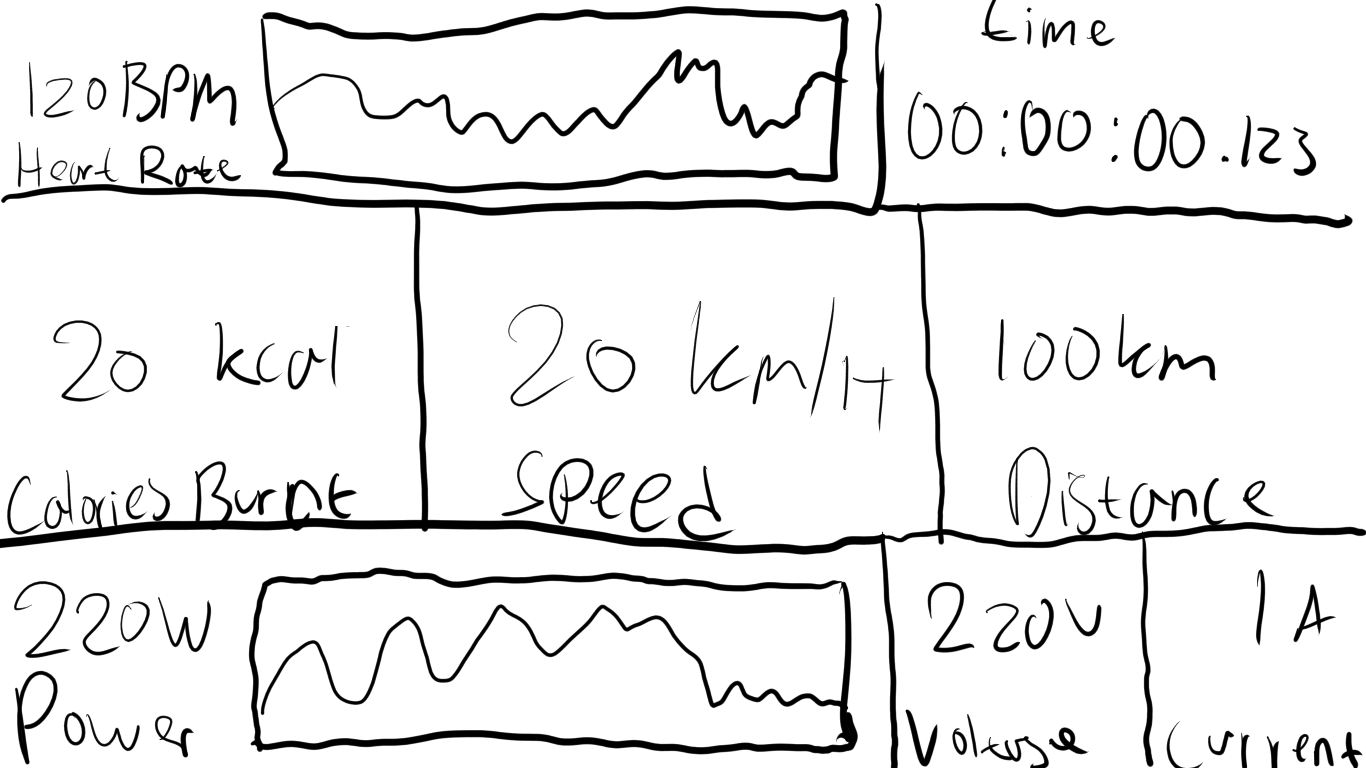 120BPM
Heart Rate
time
00:00:00.123
20 kcal
Calories Burnt
20 km/H
Speed
100km
Distance
220W
Power
220V
Voltage
1A
Current